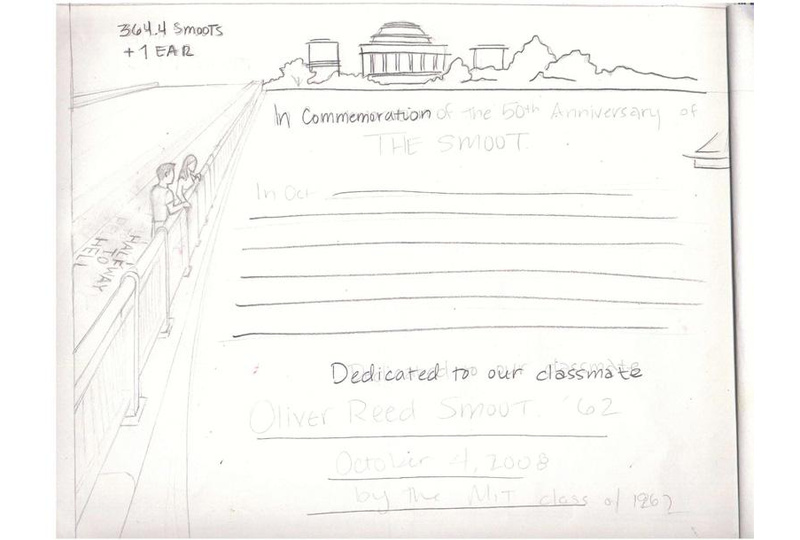 364.4 SMOOTS
+ 1 EAR
In Commemoration of the 50th Anniversary of
THE SMOOT
In Oct
HALF
WAY
TO
HELL
Dedicated to our classmate
Oliver Reed Smoot '62
October 4, 2008
by the MIT class of 1962